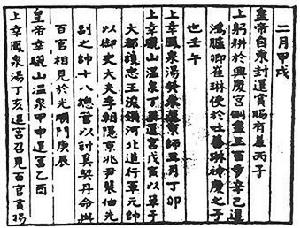 二月甲戌
皇帝自東封還賞賜有差丙子
上躬耕於興慶宮側盡三百步辛巳遣
鴻臚卿崔琳使於吐蕃琳神慶之子
也壬午
上幸鳳泉湯癸未還京師五月丁卯
上幸驪山溫泉丁還宮戊寅以單于
大都護忠王浚領河北道行軍元帥
以御史大夫李朝隱京兆尹裴伷先
副之帥十八總管以討奚契丹命與
百官相見於光順門庚辰
皇帝幸驪山溫泉甲申還宮乙酉
上幸鳳泉湯丁亥還宮召見百官賞賜